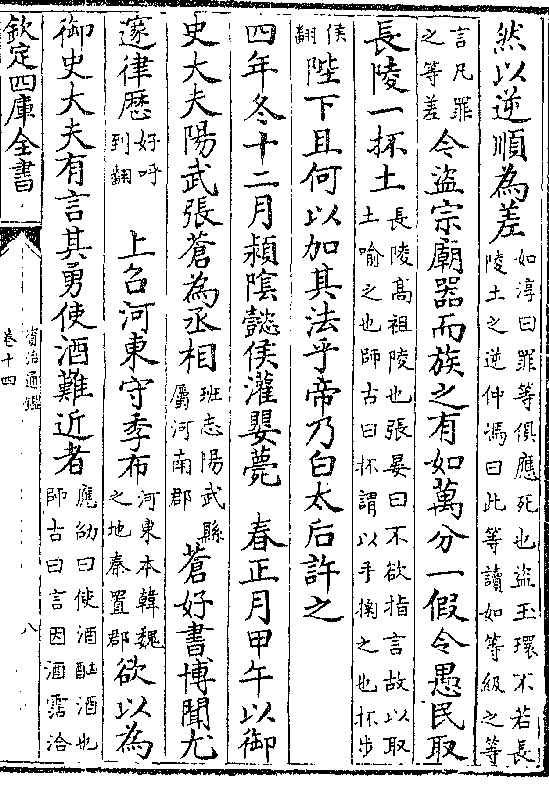 然以逆順為差如淳曰罪等俱應死也盜玉環不若長陵土之逆仲馮曰此等讀如等級之等
言凡罪之等差令盜宗廟器而族之有如萬分一假令愚民取
長陵一抔土長陵高祖陵也張晏曰不欲指言故以取土喻之也師古曰抔謂以手掬之也抔步
侯翻陛下且何以加其法乎帝乃白太后許之
四年冬十二月潁隂懿侯灌嬰薨 春正月甲午以御
史大夫陽武張蒼為丞相班志陽武縣屬河南郡蒼好書博聞尤
邃律歴好呼到翻 上召河東守季布河東本韓魏之地秦置郡欲以為
御史大夫有言其勇使酒難近者應劭曰使酒酗酒也師古曰言因酒霑洽
欽定四庫全書
資治通鑑
卷十四
八